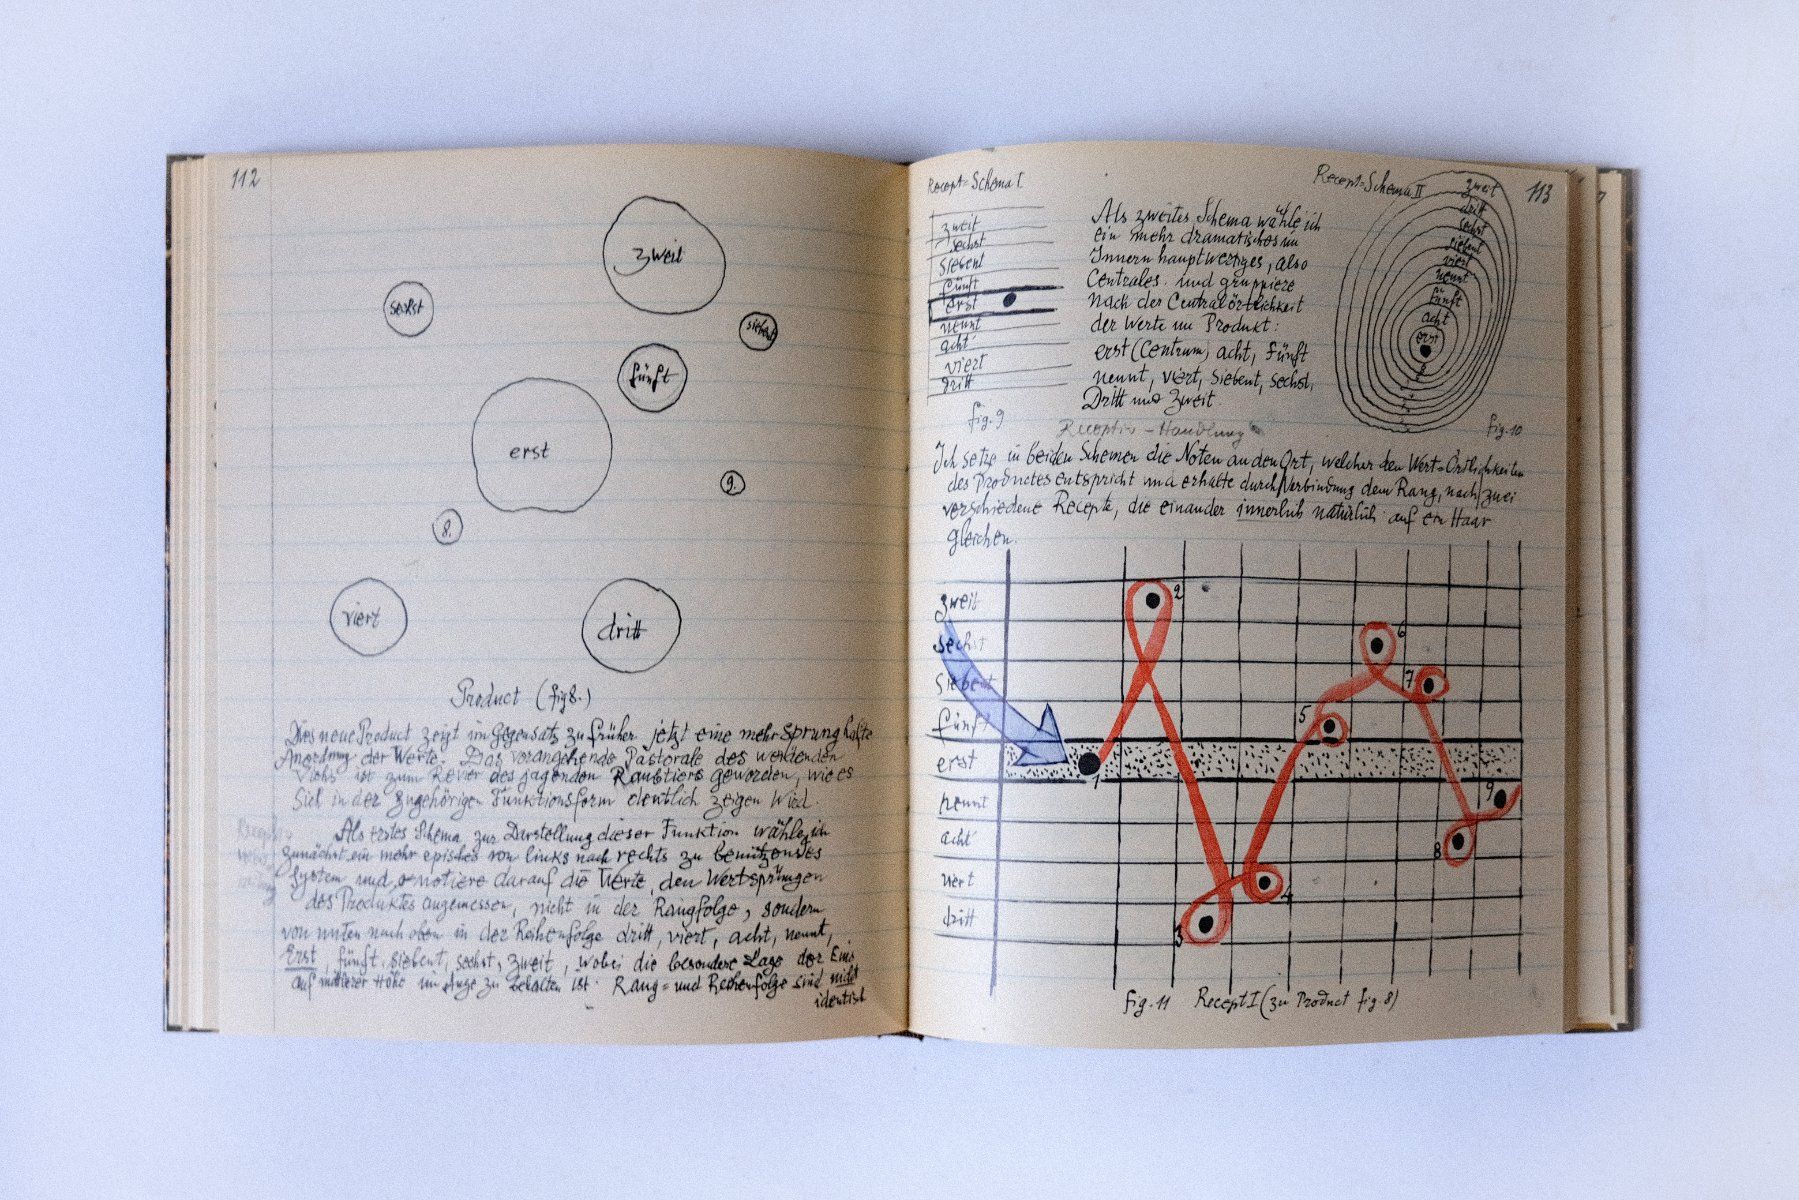 112
zweit
sechst
siebent
fünft
erst
9.
8.
viert
dritt
Product (fig 8.)
Das neue Product zeigt im Gegensatz zu früher jetzt eine mehr sprunghafte
Anordnung der Werte. Das vorangehende Pastorale des weidenden
Viehs ist zum Revier des jagenden Raubtiers geworden, wie es
sich in der zugehörigen Funktionsform deutlich zeigen wird.
Als erstes Schema zur Darstellung dieser Funktion wähle ich
zunächst ein mehr episches von links nach rechts zu benützendes
System und notiere darauf die Werte, den Wertsprüngen
des Produktes angemessen, nicht in der Rangfolge, sondern
von unten nach oben in der Reihenfolge dritt, viert, acht, neunt,
Erst, fünft, siebent, sechst, zweit, wobei die besondere Lage der Eins
auf mittlerer Höhe im Auge zu behalten ist. Rang= und Reihenfolge sind nicht
identisch
Recept=Schema I.
zweit
sechst
siebent
fünft
erst
neunt
acht
viert
dritt
fig. 9
Recept=Schema II
113
Als zweites Schema wähle ich
ein mehr dramatisches im
Innern hauptwertiges, also
Centrales und gruppiere
nach der Centralörtlichkeit
der Werte im Produkt:
erst (Centrum) acht, fünft
neunt, viert, siebent, sechst,
Dritt und Zweit.
zweit
dritt
sechst
siebent
viert
neunt
fünft
acht
erst
fig. 10
Receptiv-Handlung
Ich setze in beiden Schemen die Noten an den Ort, welcher den Wert=Örtlichkeiten
des Productes entspricht und erhalte durch Verbindung dem Rang nach zwei
verschiedene Recepte, die einander innerlich natürlich auf ein Haar
gleichen.
zweit
sechst
siebent
fünft
erst
neunt
acht
viert
dritt
1
2
3
4
5
6
7
8
9
fig. 11 Recept I (zu Product fig 8)